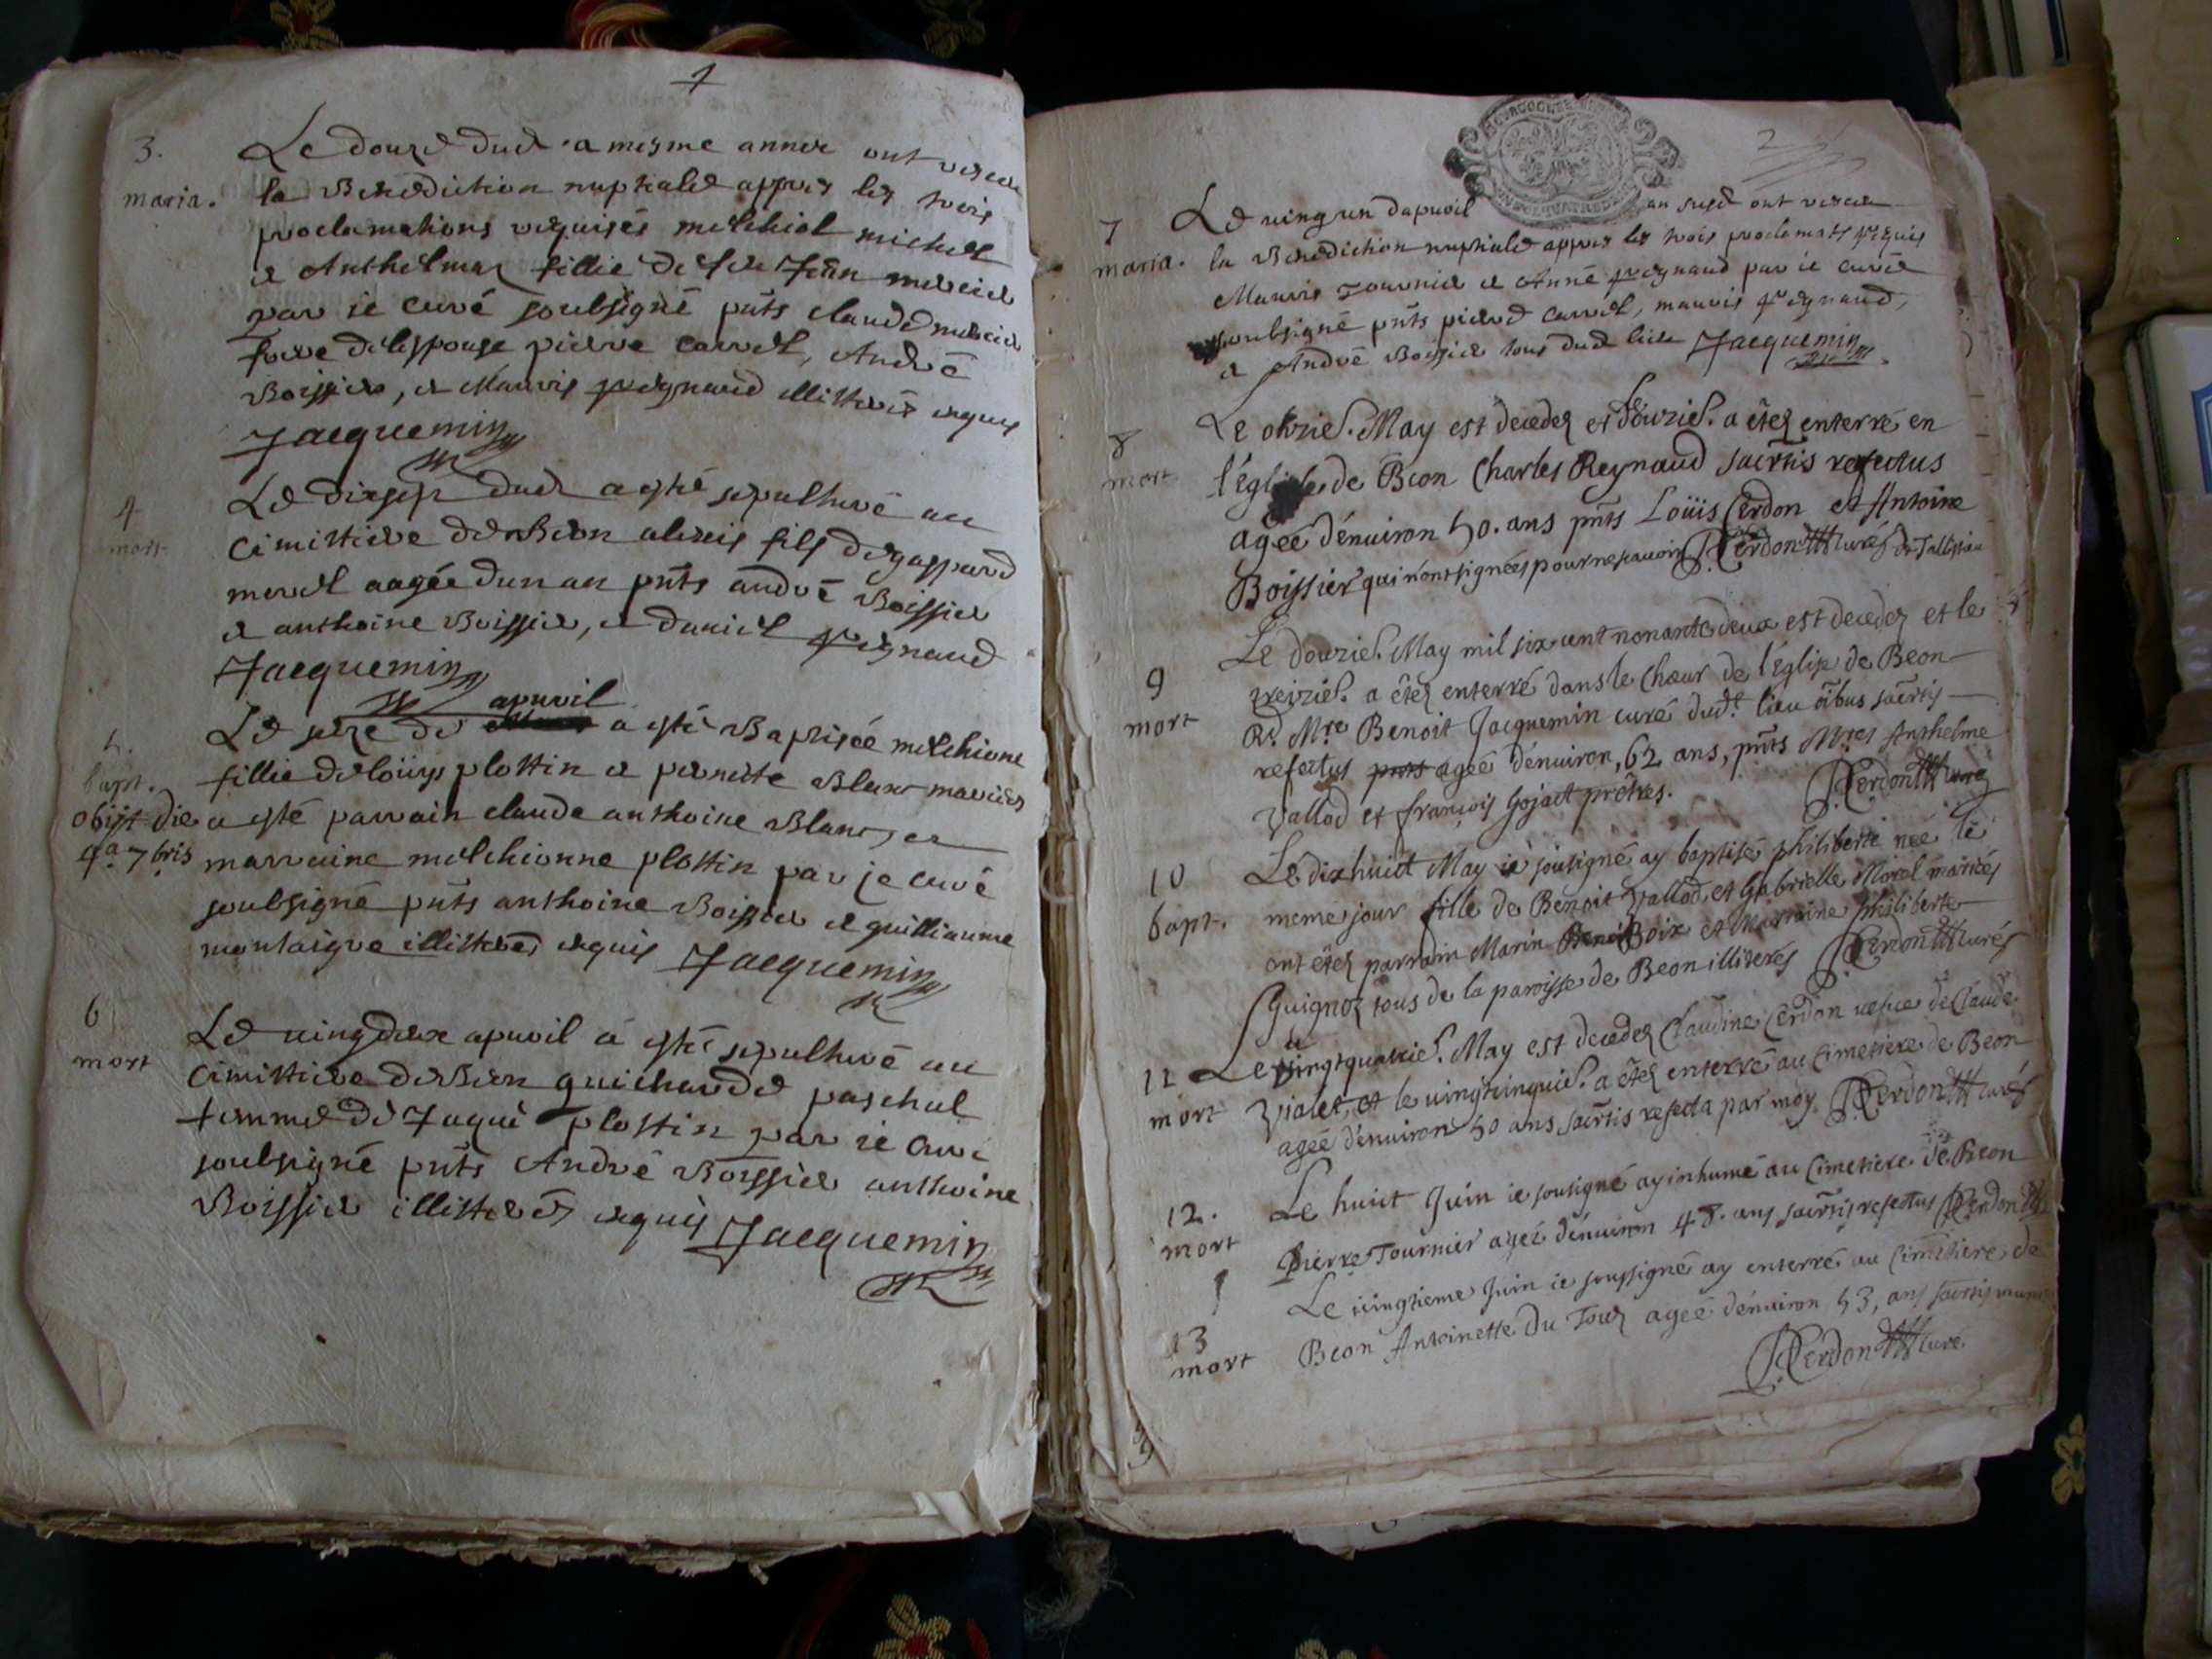 1
3.
maria.
Le douze dud a mesme annee ont receu
la Benediction nuptiale appres les trois
proclamations requises melchiol michel
et Anthelmaz fillie de feu Jean mercier
par ie curé soubsigné pnts claude mercier
frere de lespouse pierre carrel, André
Boissier, et Mauris Reignaud illitterés requis
Jacquemin
4
mort
Le dixsept dud a esté sepulturé au
cimittiere de Beon alexis fils de gaspard
morel aagée dun an pnts andré Boissier
et anthoine Boissier, et daniel Reignaud
Jacquemin
5.
bapt.
apvril
Le seze de a esté Baptisée melchionne
fillie de loüys plottin et pernette Blanc mariés
obijt die
4a 7bris
a esté parrain claude anthoine Blanc, et
marraine melchionne plottin par je curé
soubsigné pnts anthoine Boissier et guilliaume
montaigre illitterés requis Jacquemin
6
mort
Le vingdeux apvril a esté sepulturé au
cimittiere de Beon guicharde paschal
femme de Jaque plottin par ie curé
soubsigné pnts André Boissier anthoine
Boissier illitterés requis Jacquemin
2
7
maria.
Le vingun dapvril an susd ont receu
la Benediction nuptiale appres les trois proclamats requis
Mauris Tournier et Anné Reignaud par ie curé
soubsigné pnts pierre carrel, mauris Reignaud,
et André Boissier tous dud lieu Jacquemin
8
mort
Le onzie. May est decedez et douzie. a êtez enterré en
l'Eglise de Beon Charles Reynaud sacrtis refectus
agée dénuiron 50. ans pnts Loüis Cerdon et Antoine
Boissier qui n'ont signées pour ne sauoir Cerdon curé de Talissieu
9
mort
Le douzie. May mil six cent nonante deux est decedez et le
treizie. a êtez enterré dans le Chœur de l'Eglise de Beon
Rd. Mre Benoit Jacquemin curé dudt. lieu oibus sacrtis
refectus pnts agée dénuiron, 62 ans, pnts Mres Anthelme
Vallod et françois Gojoct prêtres. Cerdon curé
10
bapt.
Le dixhuict May ie sousigné ay baptisé philiberte née le
meme jour fille de Benoit Vallod et Gabrielle Morel mariés
ont êtez parrain Marin Boix et Marraine philiberte
Guignoz tous de la paroisse de Beon illiterés Cerdon curé
11
mort
Le vingtquatrie. May est decedez Claudine Cerdon vefue de Claude
Violet, et le vingtcinquie. a êtez enterré au Cimetiere de Beon
agée dénuiron 50 ans sacrtis refecta par moy Cerdon curé
12.
mort
Le huict Juin ie sousigné ay inhumé au Cimetiere de Beon
Pierre Tournier agé dénuiron 48. ans sacrtis refectus Cerdon
13
mort
Le vingtieme Juin ie soussigné ay enterré au Cimetiere de
Beon Antoinette du Tour agée dénuiron 53, ans sacrtis
Cerdon curé